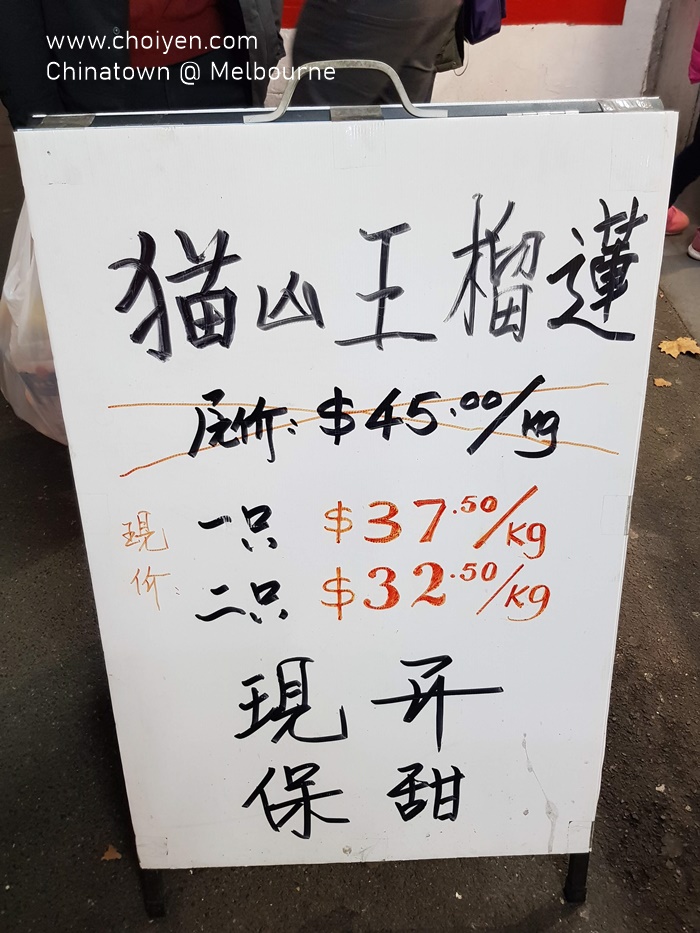 www.choiyen.com
Chinatown @ Melbourne
猫山王榴蓮
原价: $45.00/kg
現价: 一只 $37.50/kg
二只 $32.50/kg
現开
保甜